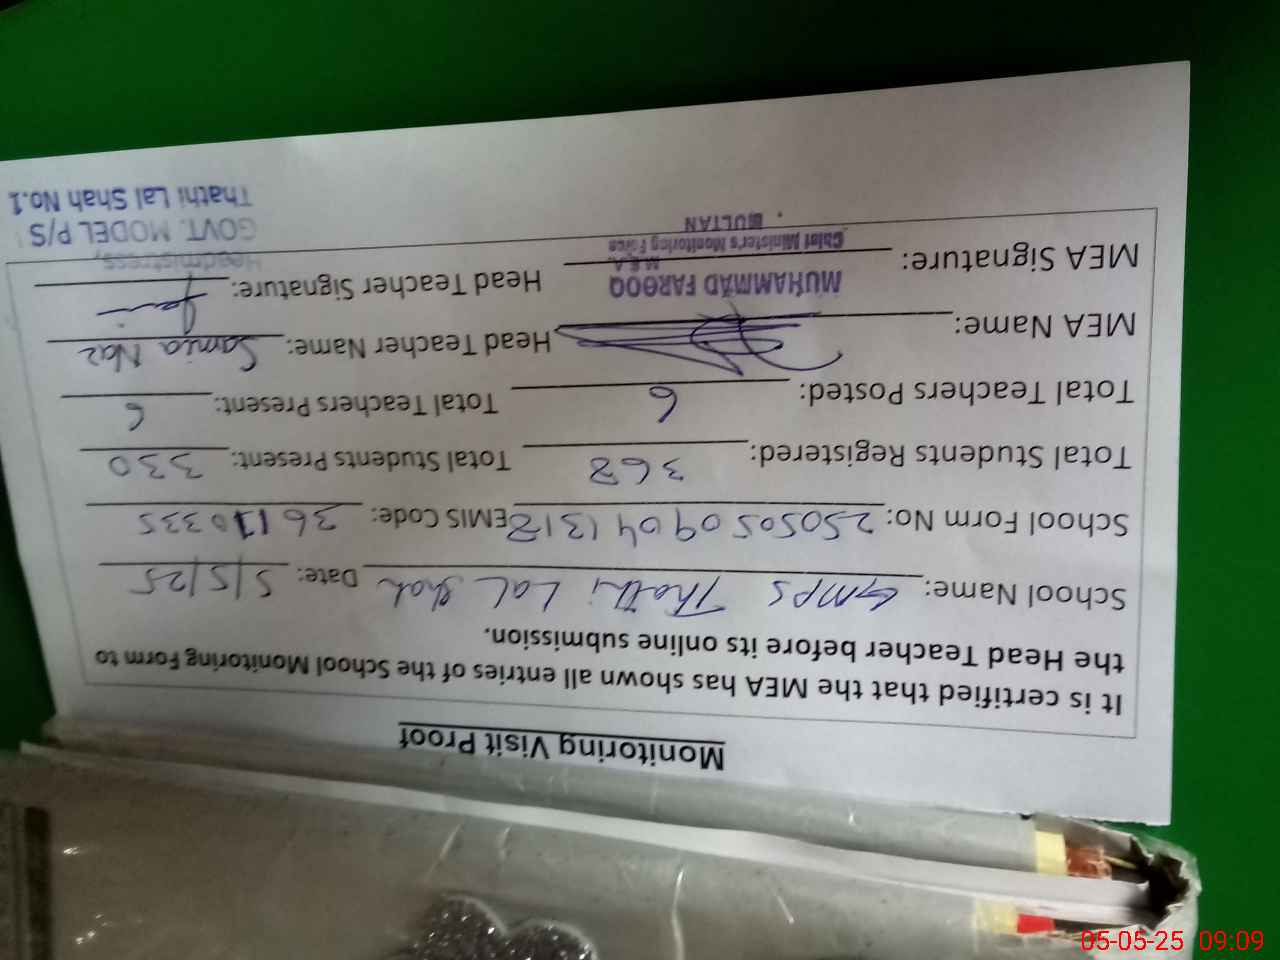 Monitoring Visit Proof
It is certified that the MEA has shown all entries of the School Monitoring Form to
the Head Teacher before its online submission.
School Name: GMPS Thathi Lal Shah Date: 5/5/25
School Form No: 25050509041318 EMIS Code: 36110335
Total Students Registered: 368 Total Students Present: 330
Total Teachers Posted: 6 Total Teachers Present: 6
MEA Name: Head Teacher Name: Samia Naz
MEA Signature: Head Teacher Signature:
MUHAMMAD FAROOQ
M.E.A.
Chief Minister's Monitoring Force
MULTAN
Headmistress,
GOVT. MODEL P/S
Thathi Lal Shah No.1
05-05-25 09:09